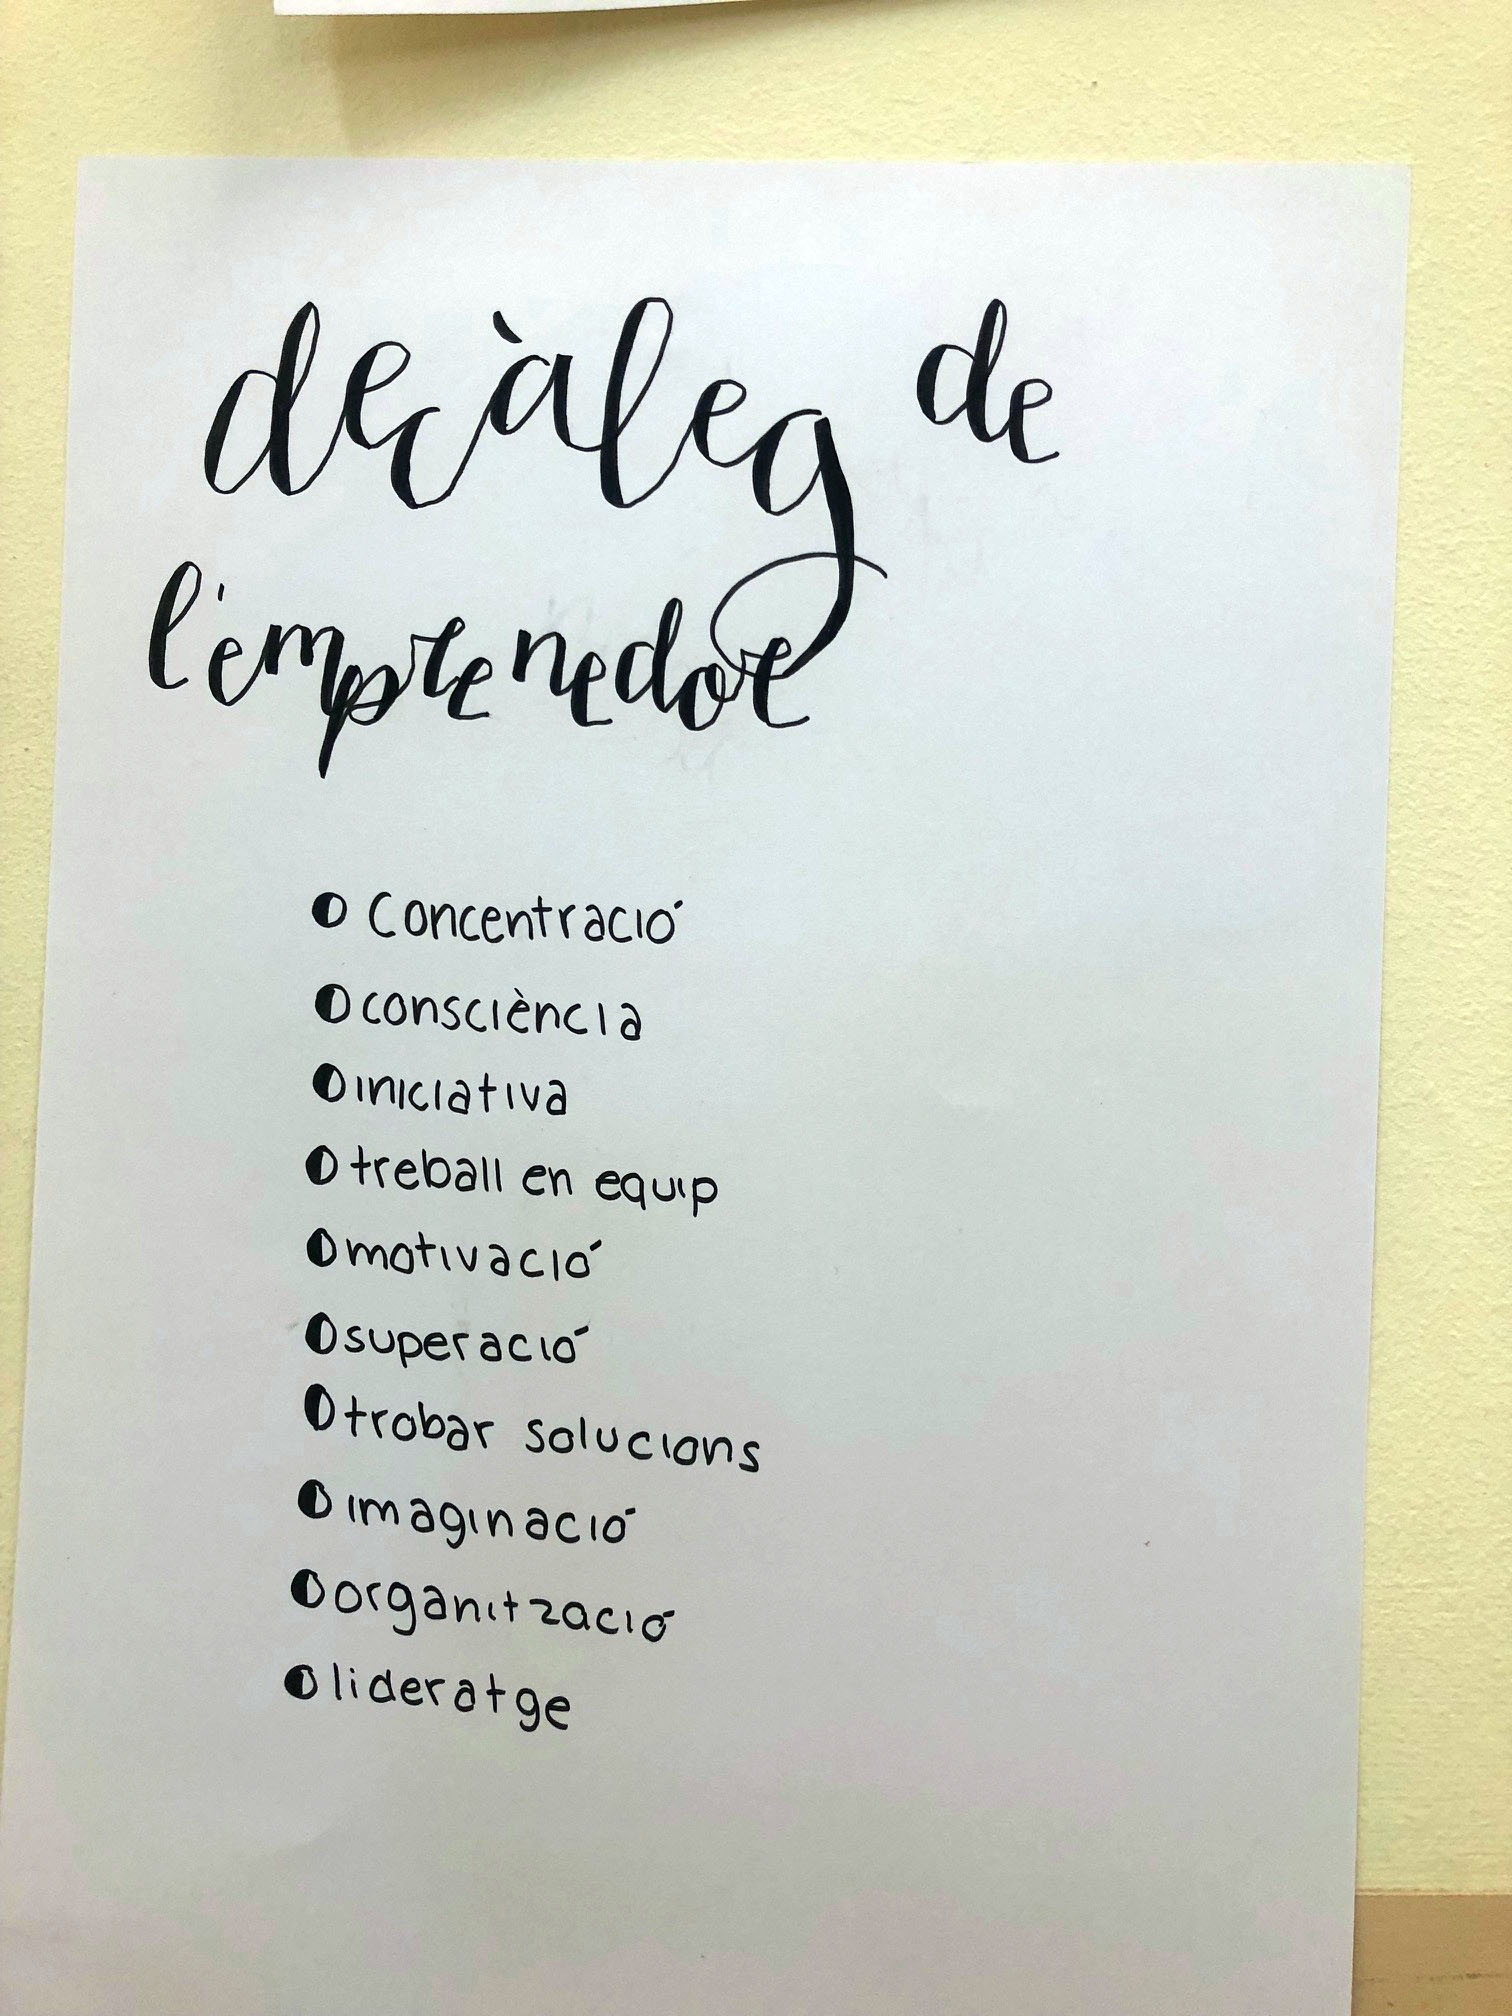 decàleg de
l'emprenedor
Concentració
consciència
iniciativa
treball en equip
motivació
superació
trobar solucions
imaginació
organització
lideratge